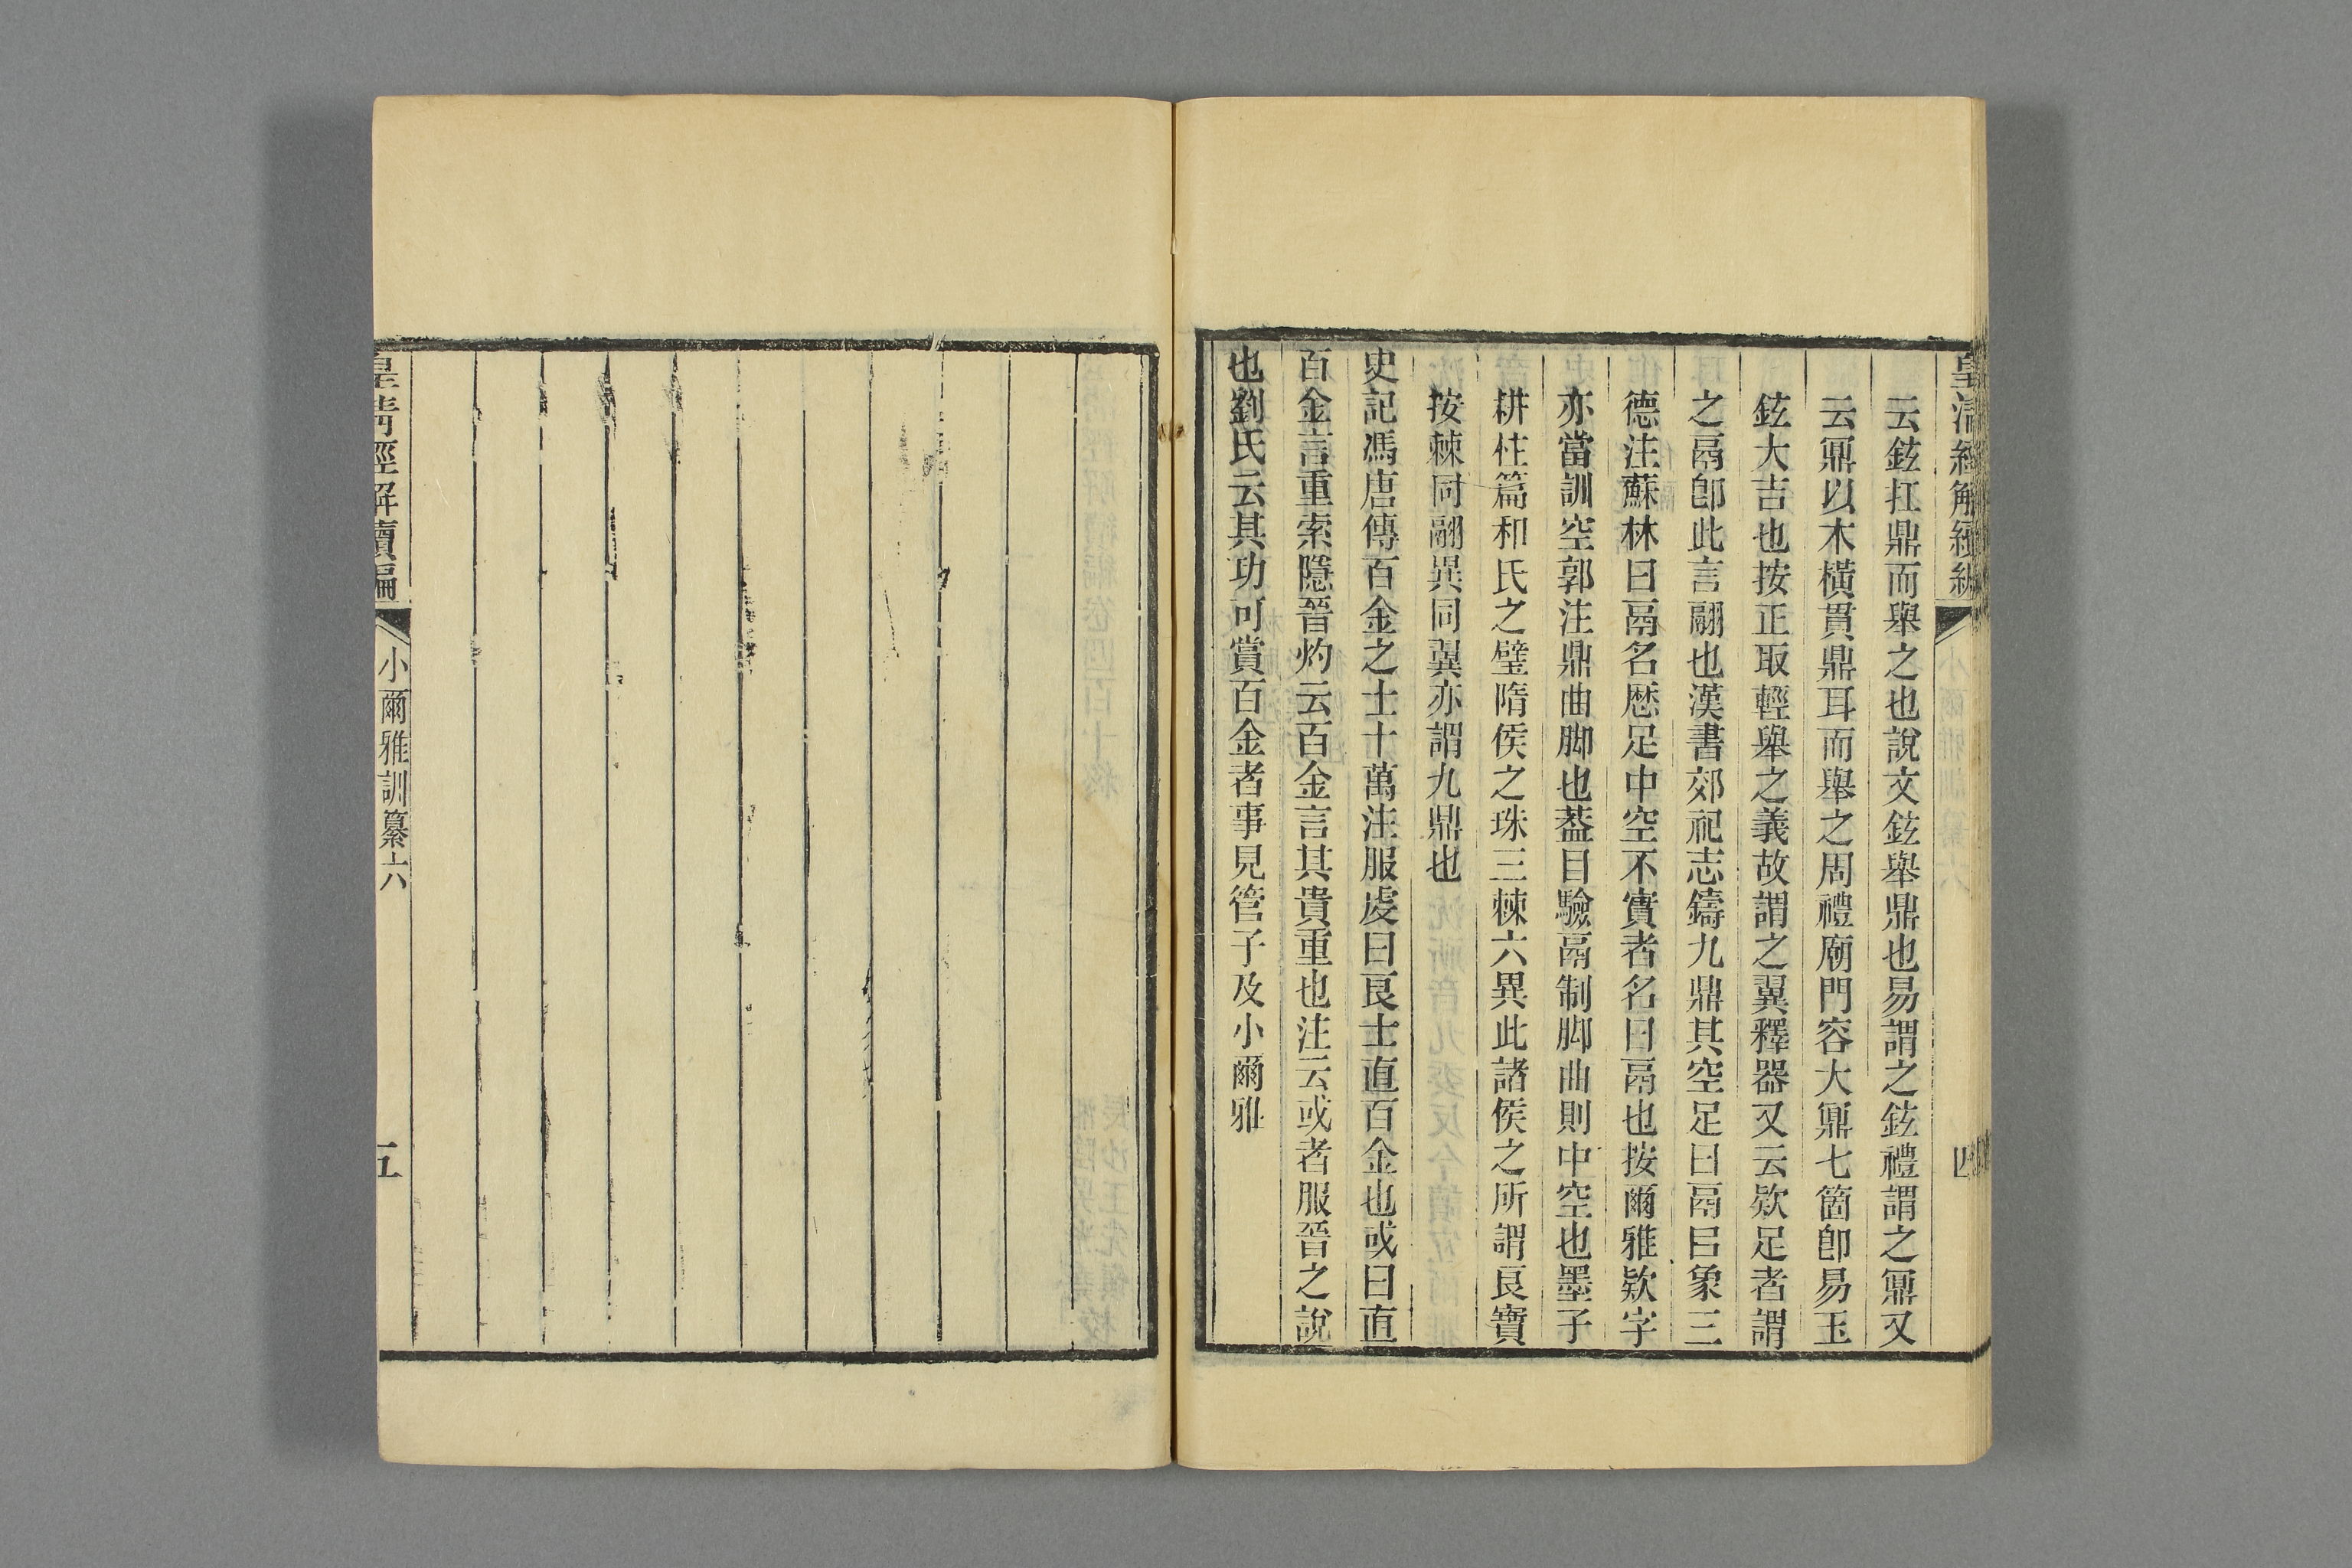 皇清經解續編
四
云鉉扛鼎而舉之也說文鉉舉鼎也易謂之鉉禮謂之鼏又
云鼏以木橫貫鼎耳而舉之周禮廟門容大鼏七箇卽易玉
鉉大吉也按正取輕舉之義故謂之翼釋器又云欵足者謂
之鬲卽此言䎗也漢書郊祀志鑄九鼎其空足曰鬲㠯象三
德注蘇林曰鬲名厯足中空不實者名曰鬲也按爾雅欵字
亦當訓空郭注鼎曲脚也葢目驗鬲制脚曲則中空也墨子
耕柱篇和氏之璧隋侯之珠三棘六異此諸侯之所謂良寶
按棘同䎗異同翼亦謂九鼎也
史記馮唐傳百金之士十萬注服虔曰良士直百金也或曰直
百金言重索隱晉灼云百金言其貴重也注云或者服晉之說
也劉氏云其功可賞百金者事見管子及小爾雅
皇清經解續編
小爾雅訓纂六
五